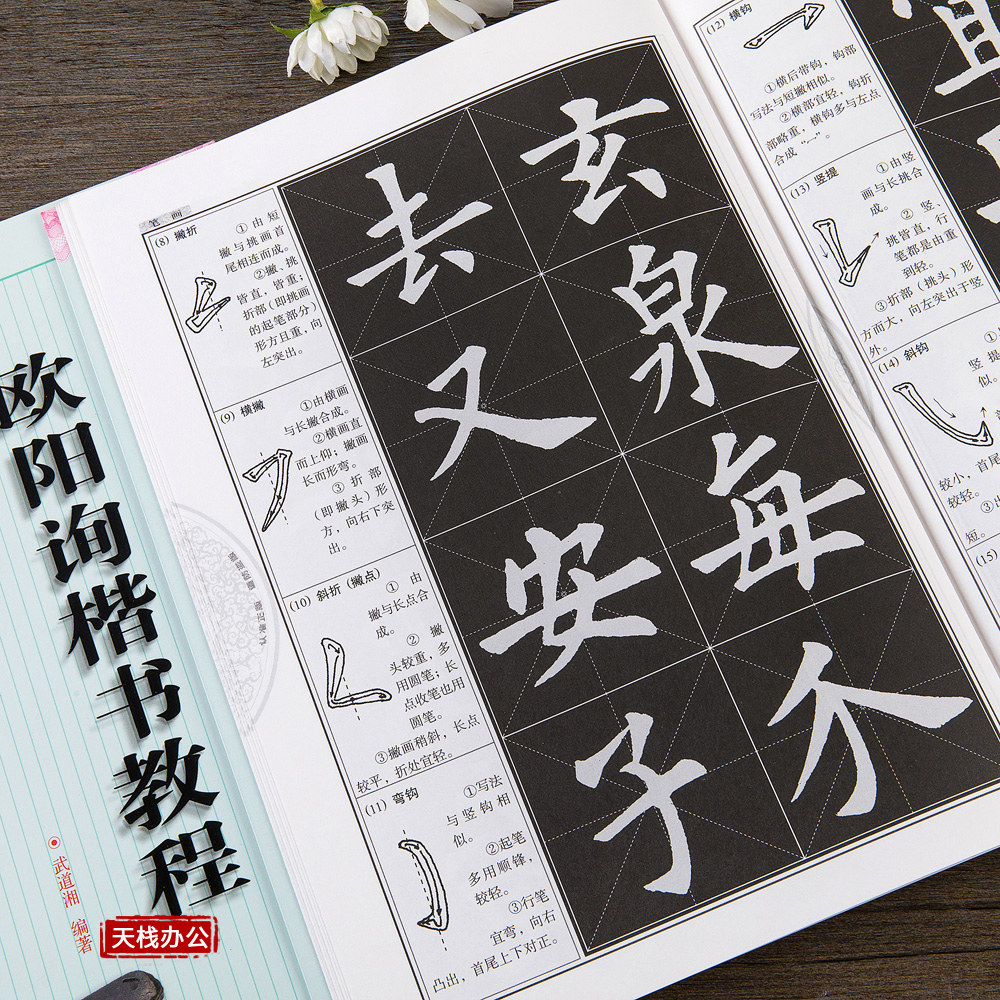 欧阳询楷书教程
武道湘 编著
天栈办公
笔 画
(8) 撇折
①由短
撇与挑画首
尾相连而成。
②撇、挑
皆直,皆重;
折部(即挑画
的起笔部分)
形方且重,向
左突出。
(9) 横撇
①由横画
与长撇合成。
②横画直
而上仰;撇画
长而形弯。
③折部
(即撇头)形
方,向右下突
出。
(10) 斜折(撇点)
①由
撇与长点合
成。
②撇
头较重,多
用圆笔;长
点收笔也用
圆笔。
③撇画稍斜,长点
较平,折处宜轻。
(11) 弯钩
①写法
与竖钩相
似。
②起笔
多用顺锋,
较轻。
③行笔
宜弯,向右
凸出,首尾上下对正。
玄泉每介
去又安子
(12) 横钩
①横后带钩,钩部
写法与短撇相似。
②横部宜轻,钩折
部略重,横钩多与左点
合成“冖”。
(13) 竖提
①由竖
画与长挑合
成。
②竖、
挑皆直,行
笔都是由重
到轻。
③折部(挑头)形
方而大,向左突出于竖
外。
(14) 斜钩
①
竖提
似。
较小,首尾
较轻。
③出
短。
(15)